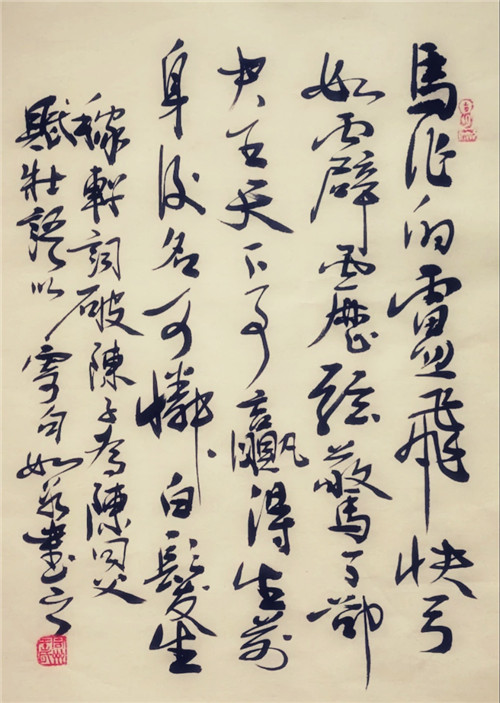 馬作的盧飛快弓
如霹靂弦驚了卻
君王天下事贏得生前
身後名可憐白髮生
稼軒詞破陳子為陳同父
賦壯語以寄如書之